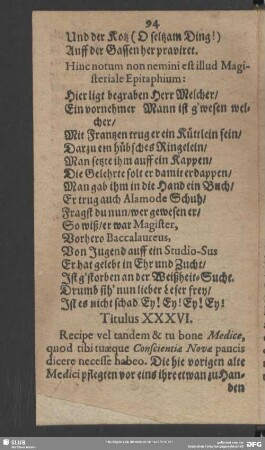 94
Und der Kotz (O seltzam Ding!)
Auff der Gassen her praviret.
Hinc notum non nemini est illud Magi-
steriale Epitaphium:
Hier ligt begraben Herr Melcher/
Ein vornehmer Mann ist g'wesen wel-
cher/
Mit Frantzen trug er ein Küttlein fein/
Darzu ein hübsches Ringelein/
Man setzte ihm auff ein Kappen/
Die Gelehrte solt er damit erdappen/
Man gab ihm in die Hand ein Buch/
Er trug auch Alamode Schuh/
Fragst du nun/wer gewesen er/
So wiß/er war Magister,
Vorhero Baccalaureus,
Von Jugend auff ein Studio-Sus
Er hat gelebt in Ehr und Zucht/
Ist g'storben an der Weißheit-Sucht.
Drumb sih' nun lieber Leser frey/
Ist es nicht schad Ey! Ey! Ey! Ey!
Titulus XXXVI.
Recipe vel tandem & tu bone Medice,
quod tibi tuæque Conscientiæ Novæ paucis
dicere necesse habeo. Die hie vorigen alte
Medici pflegten vor eins ihre etwan zu Han-
den